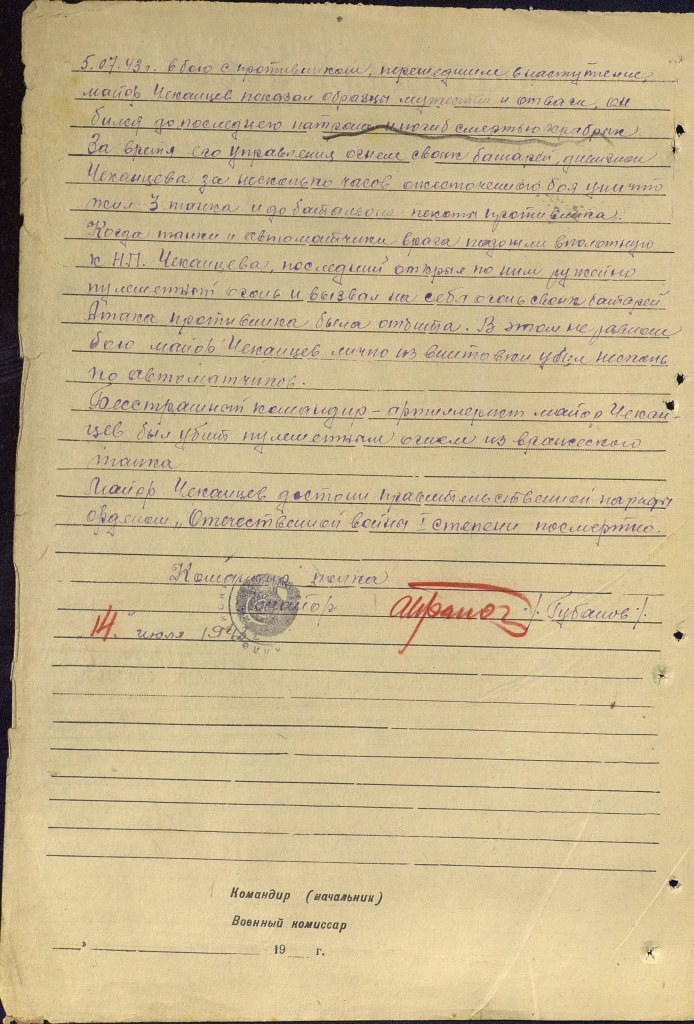 5.07.43г. в бою с противником, перешедшим в наступление,
майор Чеканцев показал образцы мужества и отваги, он
бился до последнего патрона и погиб смертью храбрых.
За время его управления огнем своих батарей, дивизион
Чеканцева за несколько часов ожесточенного боя уничто
жил 3 танка и до батальона пехоты противника.
Когда танки и автоматчики врага подошли вплотную
к Н.П. Чеканцева, последний открыл по ним ружейно
пулеметный огонь и вызвал на себя огонь своих батарей
Атака противника была отбита. В этом не равном
бою майор Чеканцев лично из винтовки убил несколь
ко автоматчиков.
Бесстрашный командир - артиллерист майор Чекан-
цев был убит пулеметным огнем из вражеского
танка
Майор Чеканцев достоин правительственной награды
орденом „Отечественной войны I степени посмертно.
Командир полка
майор /Губанов/.
14. июля 194
Командир (начальник)
Военный комиссар
19 г.